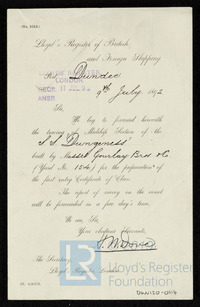 Lloyd's Register of British
and Foreign Shipping
Port Dundee
9th July 1892
LONDON
RECD 11 JUL 92
ANSD
Sir,
We beg to forward herewith
the tracing of Midship Section of the
S.S. "Dungeness"
built by Messrs Gourlay Bros & Co
(Yard No. 154) for the preparation of
the first entry Certificate of Class.
The report of survey on the vessel
will be forwarded in a few days' time.
We are, Sir,
Your obedient Servants,
The Secretary
Lloyd's Register, London
LR
Lloyd's Register
Foundation